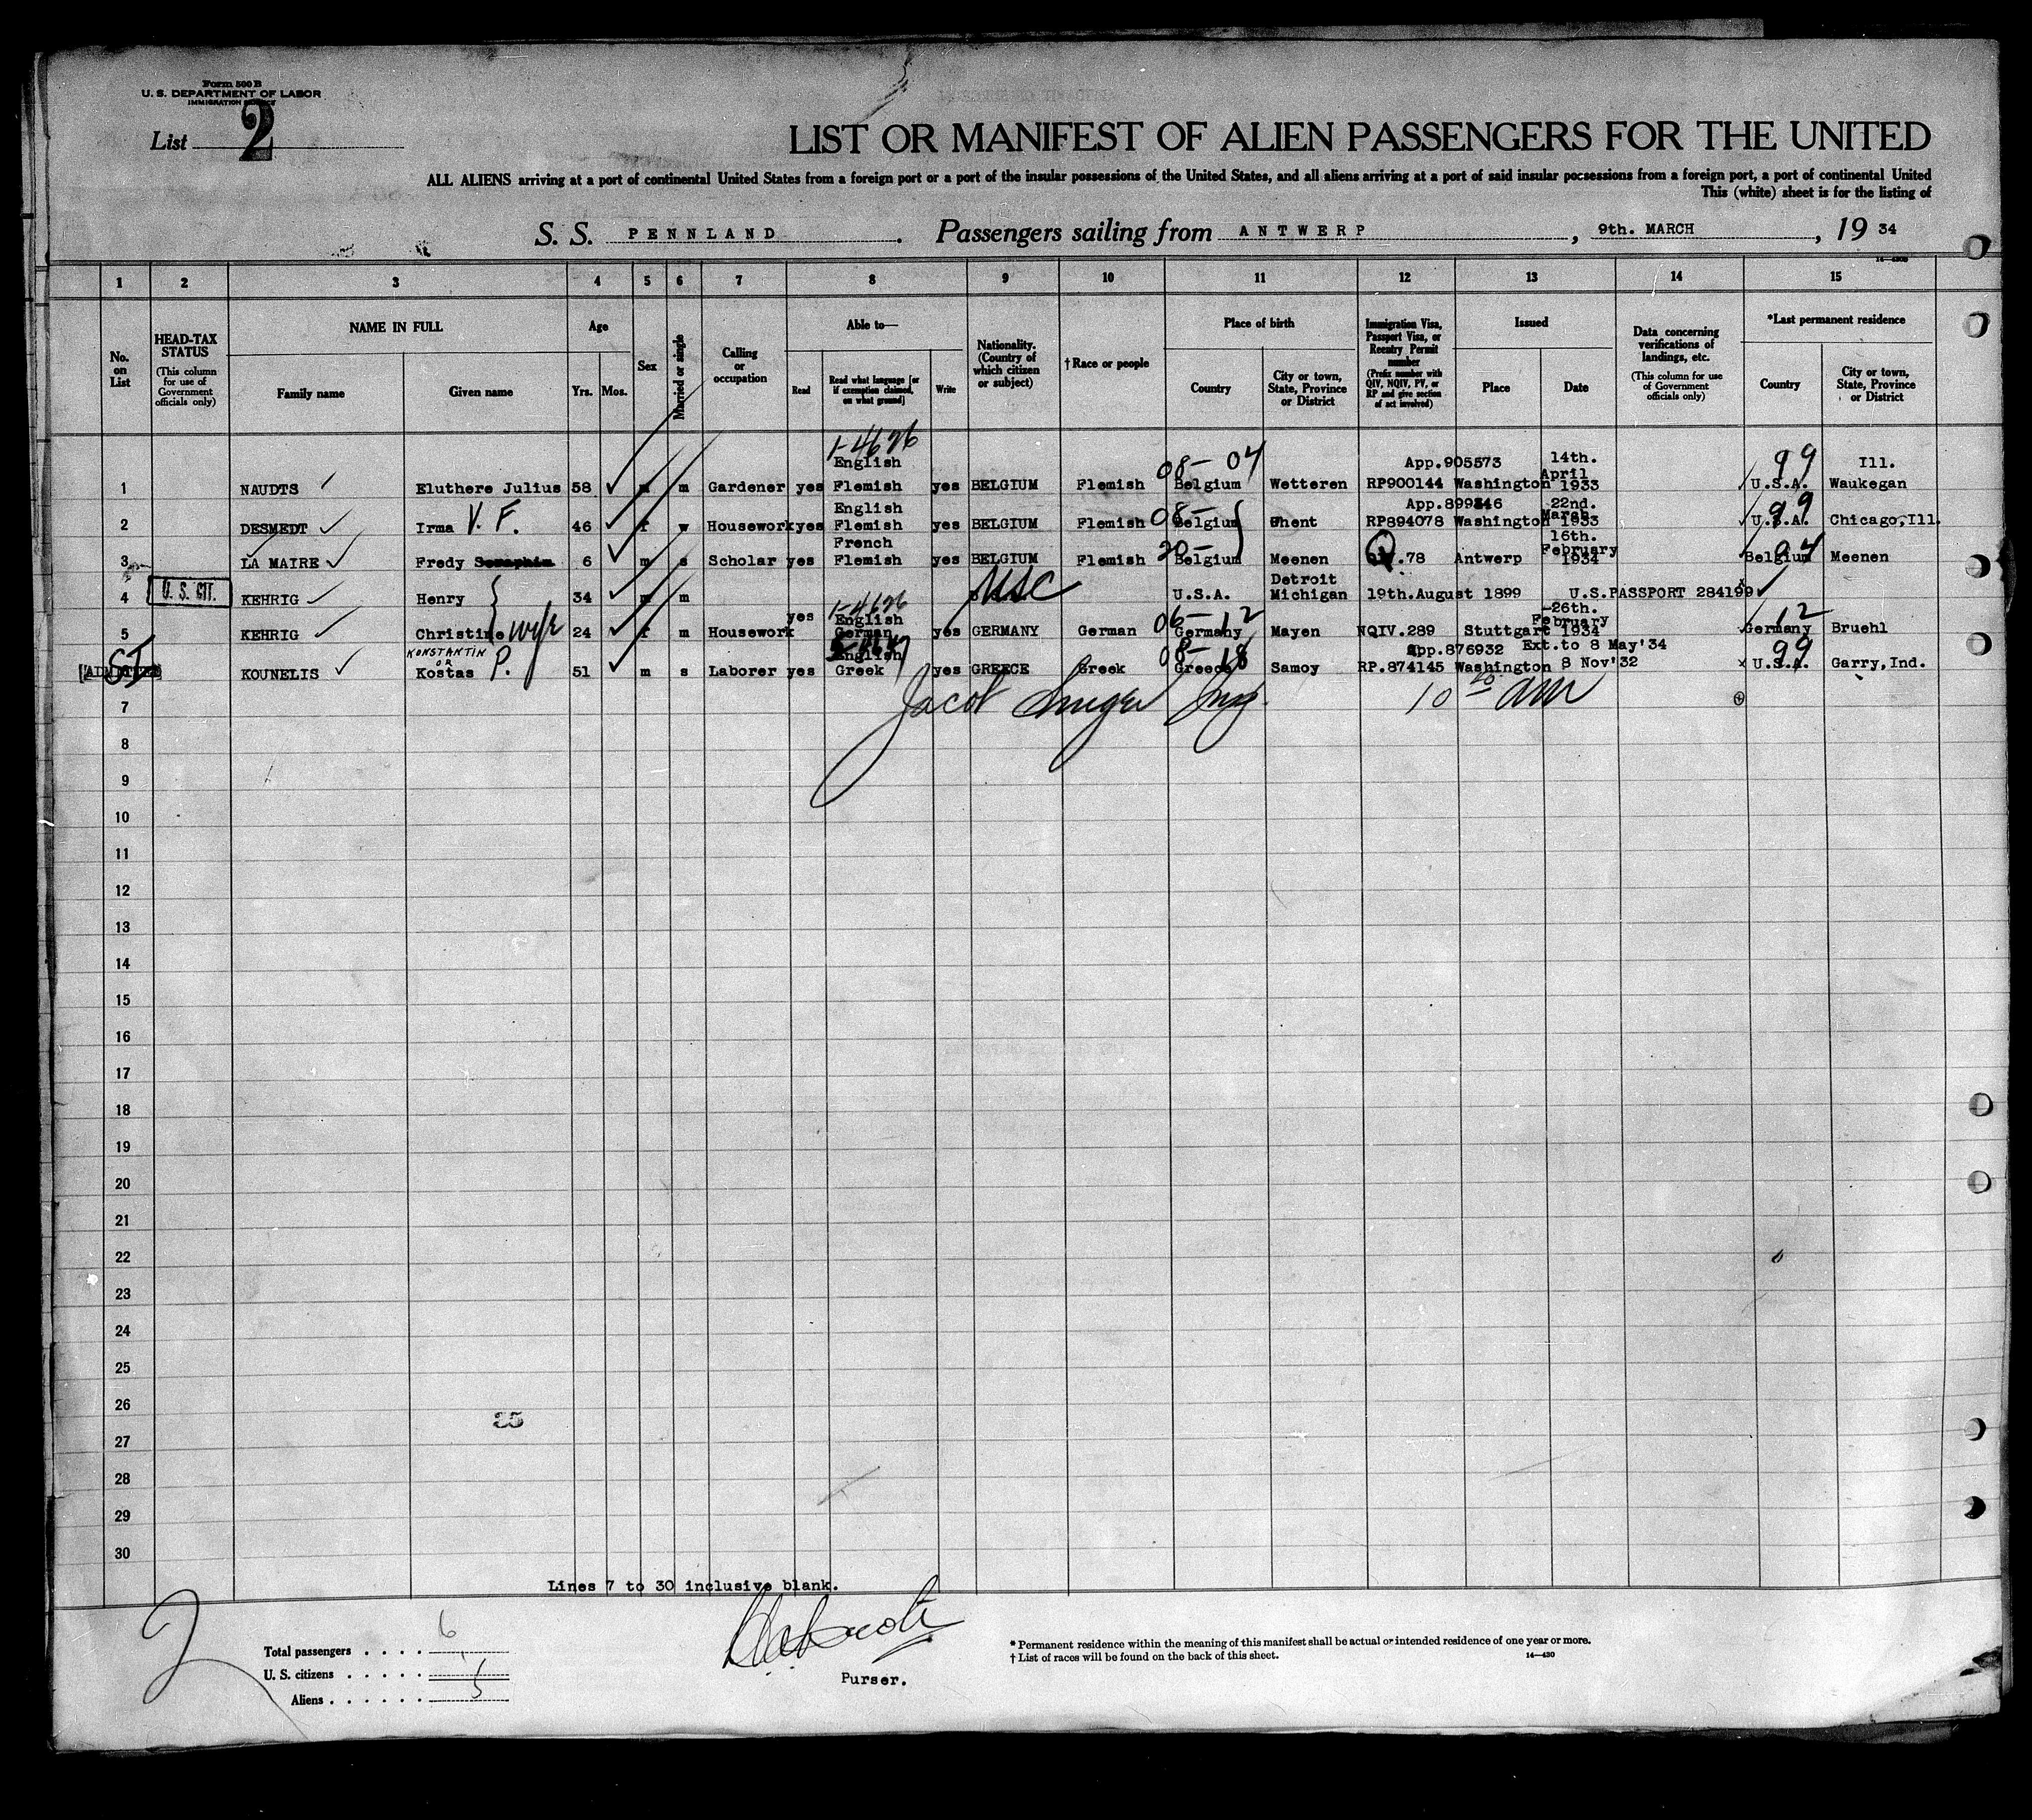 Form 500 B
U. S. DEPARTMENT OF LABOR
IMMIGRATION SERVICE
List 2
LIST OR MANIFEST OF ALIEN PASSENGERS FOR THE UNITED
ALL ALIENS arriving at a port of continental United States from a foreign port or a port of the insular possessions of the United States, and all aliens arriving at a port of said insular possessions from a foreign port, a port of continental United
This (white) sheet is for the listing of
S. S. PENNLAND. Passengers sailing from ANTWERP, 9th. MARCH, 19 34
1 2 3 4 5 6 7 8 9 10 11 12 13 14 15
No. on List
HEAD-TAX STATUS (This column for use of Government officials only)
NAME IN FULL
Family name
Given name
Age
Yrs. Mos.
Sex
Married or single
Calling or occupation
Able to—
Read
Read what language [or if exemption claimed, on what ground]
Write
Nationality. (Country of which citizen or subject)
†Race or people
Place of birth
Country
City or town, State, Province or District
Immigration Visa, Passport Visa, or Reentry Permit number (Prefix number with QIV, NQIV, PV, or RP and give section of act involved)
Issued
Place
Date
Data concerning verifications of landings, etc. (This column for use of Government officials only)
*Last permanent residence
Country
City or town, State, Province or District
1-4626
English 08-04 App.905573 14th. April 99 Ill.
1 NAUDTS Eluthere Julius 58 m m Gardener yes Flemish yes BELGIUM Flemish Belgium Wetteren RP900144 Washington 1933 U.S.A. Waukegan
English 08- App.899846 22nd. March 99
2 DESMEDT Irma V. F. 46 f w Housework yes Flemish yes BELGIUM Flemish Belgium Ghent RP894078 Washington 1933 U.S.A. Chicago,Ill.
French 20- 16th. February 04
3 LA MAIRE Fredy Seraphim 6 m s Scholar yes Flemish yes BELGIUM Flemish Belgium Meenen .78 Antwerp 1934 Belgium Meenen
USC Detroit
4 U. S. CIT. KEHRIG Henry 34 m m U.S.A. Michigan 19th.August 1899 U.S.PASSPORT 284199
1-4626
yes English 06-12 -26th. February 12
5 KEHRIG Christine wife 24 f m Housework German yes GERMANY German Germany Mayen NQIV.289 Stuttgart 1934 Germany Bruehl
KONSTANTIN OR English 08-18 App.876932 Ext.to 8 May'34 99
SI KOUNELIS Kostas P. 51 m s Laborer yes Greek yes GREECE Greek Greece Samoy RP.874145 Washington 8 Nov'32 U.S.A. Garry,Ind.
7 Jacob 10 20 am
8
9
10
11
12
13
14
15
16
17
18
19
20
21
22
23
24
25
26
27
28
29
30
Lines 7 to 30 inclusive blank.
2
Total passengers . . . . 6
U. S. citizens . . . . . 1
Aliens . . . . . . 5
Purser.
* Permanent residence within the meaning of this manifest shall be actual or intended residence of one year or more.
† List of races will be found on the back of this sheet. 14—430